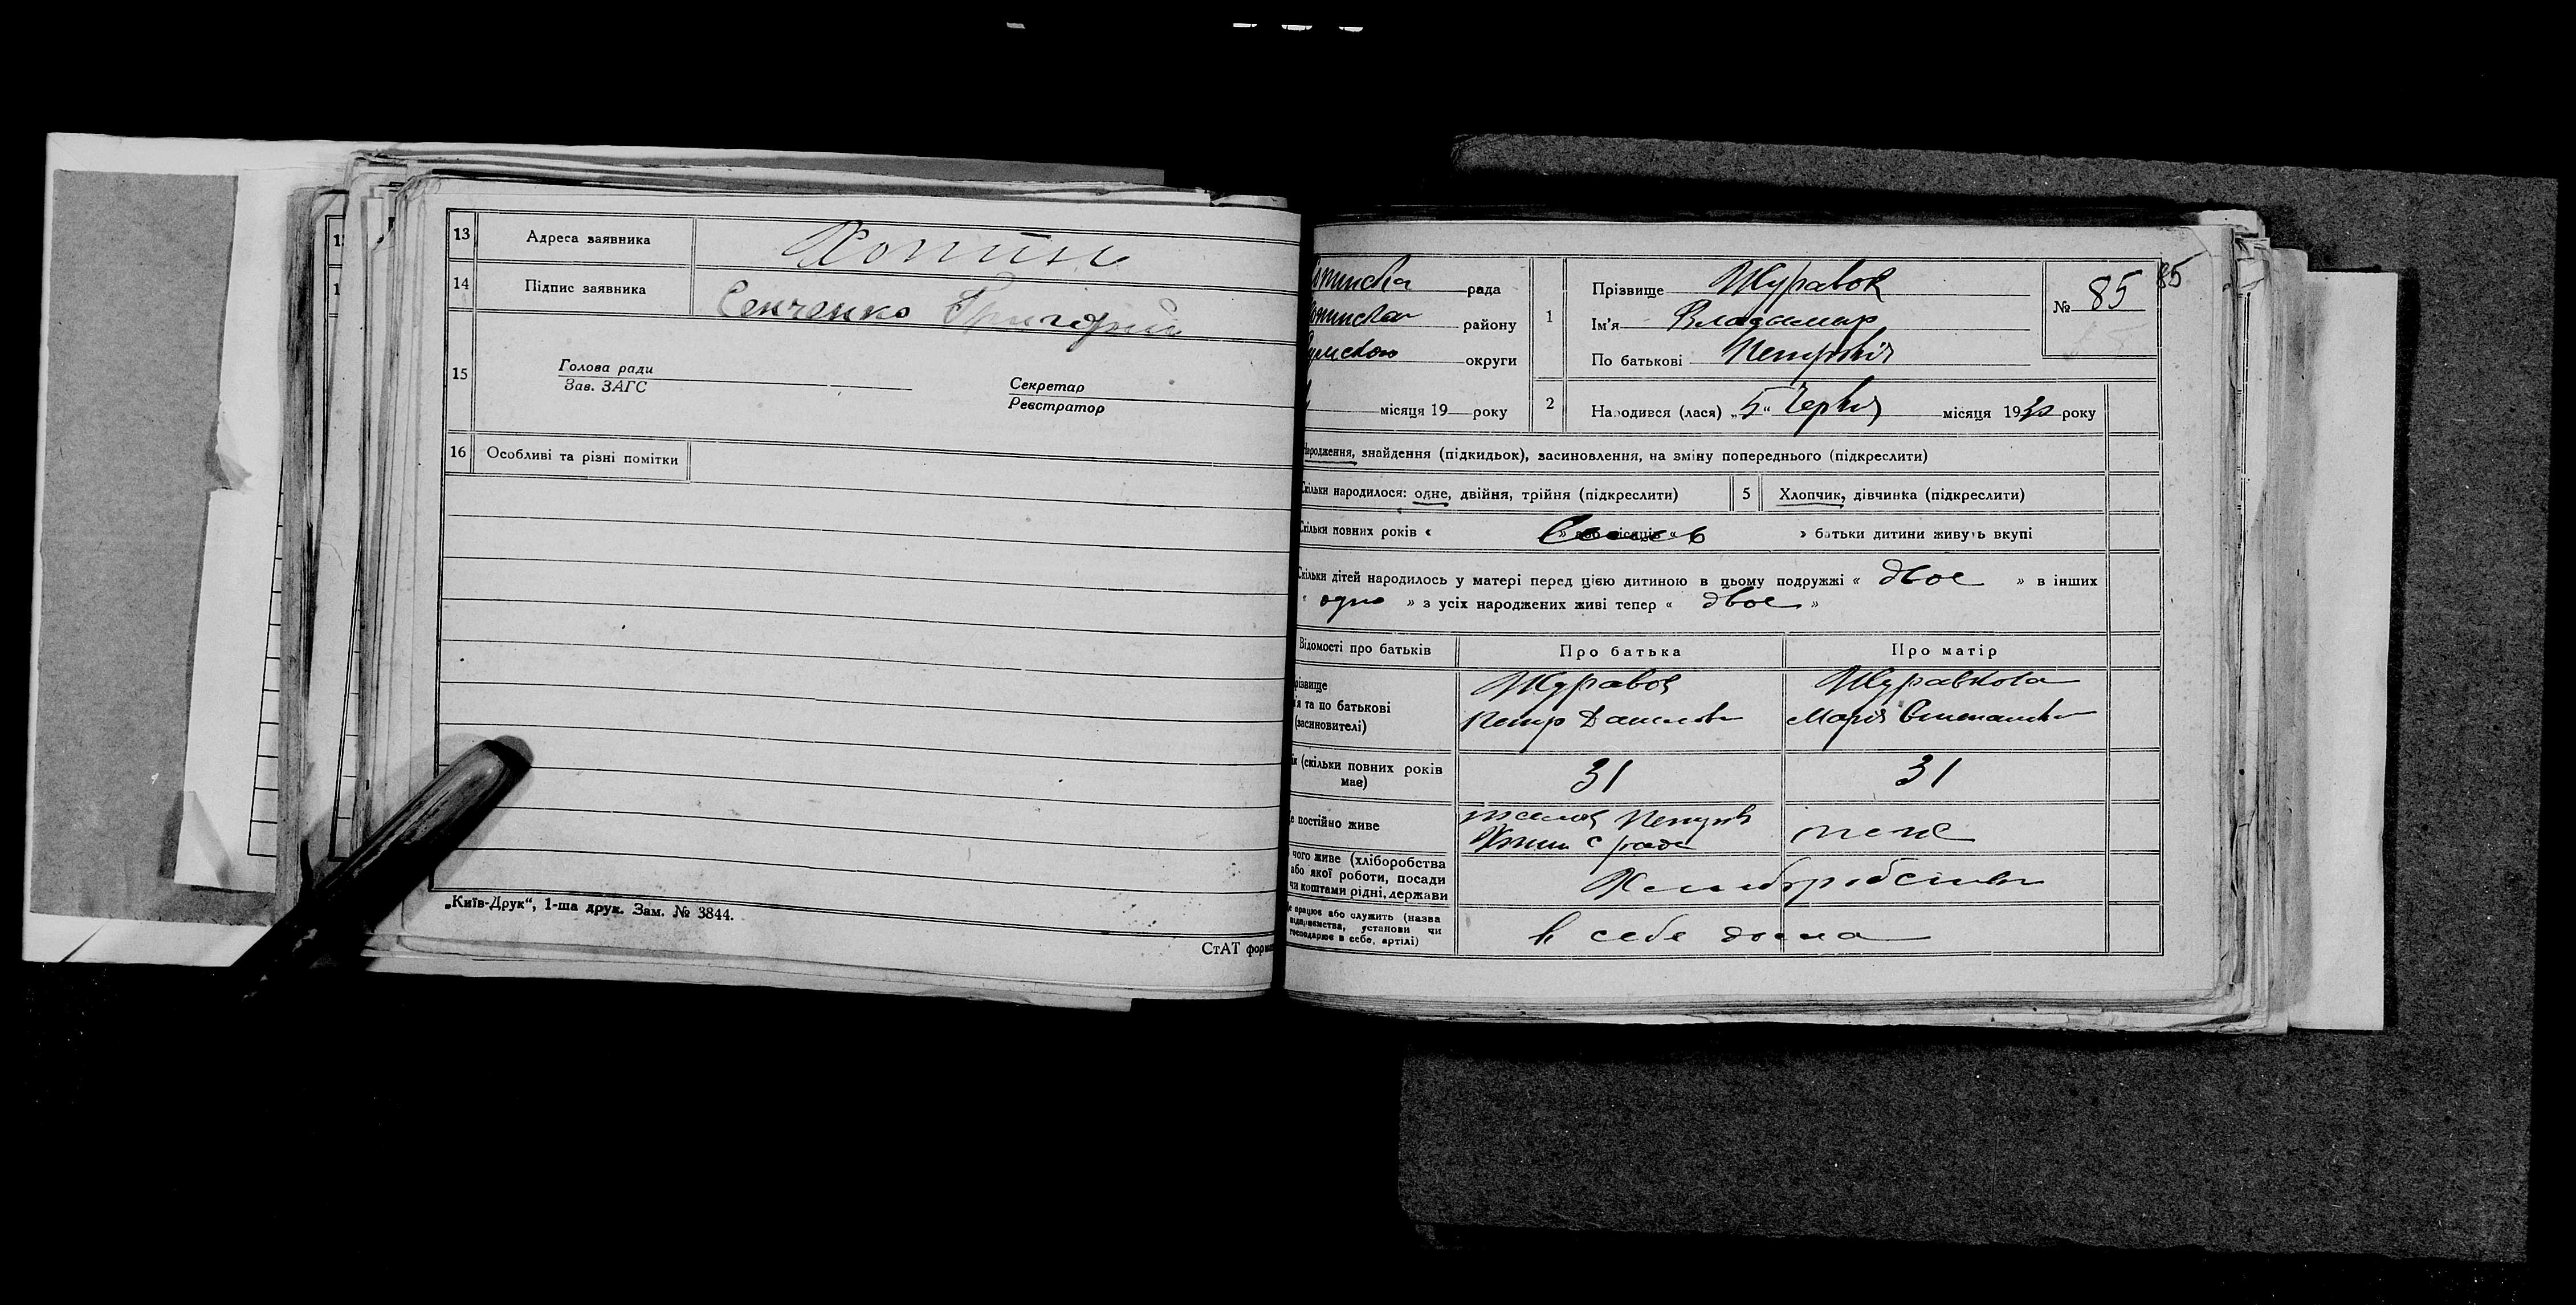 13 Адреса заявника Хотинь
14 Підпис заявника Сенченко Григорий
15 Голова ради
Зав. ЗАГС
Секретар
Реєстратор
16 Особливі та різні помітки
„Київ-Друк“, 1-ша друк. Зам. № 3844.
СтАТ форма
отинська рада
отинськ району
умскою округи
місяця 19 року
1 Прізвище Журавок
Ім'я Владимир
По батькові Петровіч
№ 85
85
2 Народився (лася) „5“ Червня місяця 1930 року
Народження, знайдення (підкидьок), засиновлення, на зміну попереднього (підкреслити)
Скільки народилося: одне, двійня, трійня (підкреслити) 5 Хлопчик, дівчинка (підкреслити)
Скільки повних років « » батьки дитини живуть вкупі
Скільки дітей народилось у матері перед цією дитиною в цьому подружжі « двое » в інших
« одно » з усіх народжених живі тепер « двое »
Відомості про батьків Про батька Про матір
різвище Журавок Журавкова
'я та по батькові
(засиновителі) Петр Данилов Марія Степановна
ік (скільки повних років
має) 31 31
е постійно живе
с рада теж
чого живе (хліборобства
або якої роботи, посади
чи коштами рідні, держави Хлиборобство
е працює або служить (назва
підприємства, установи чи
господарює в себе, артілі) в себе дома